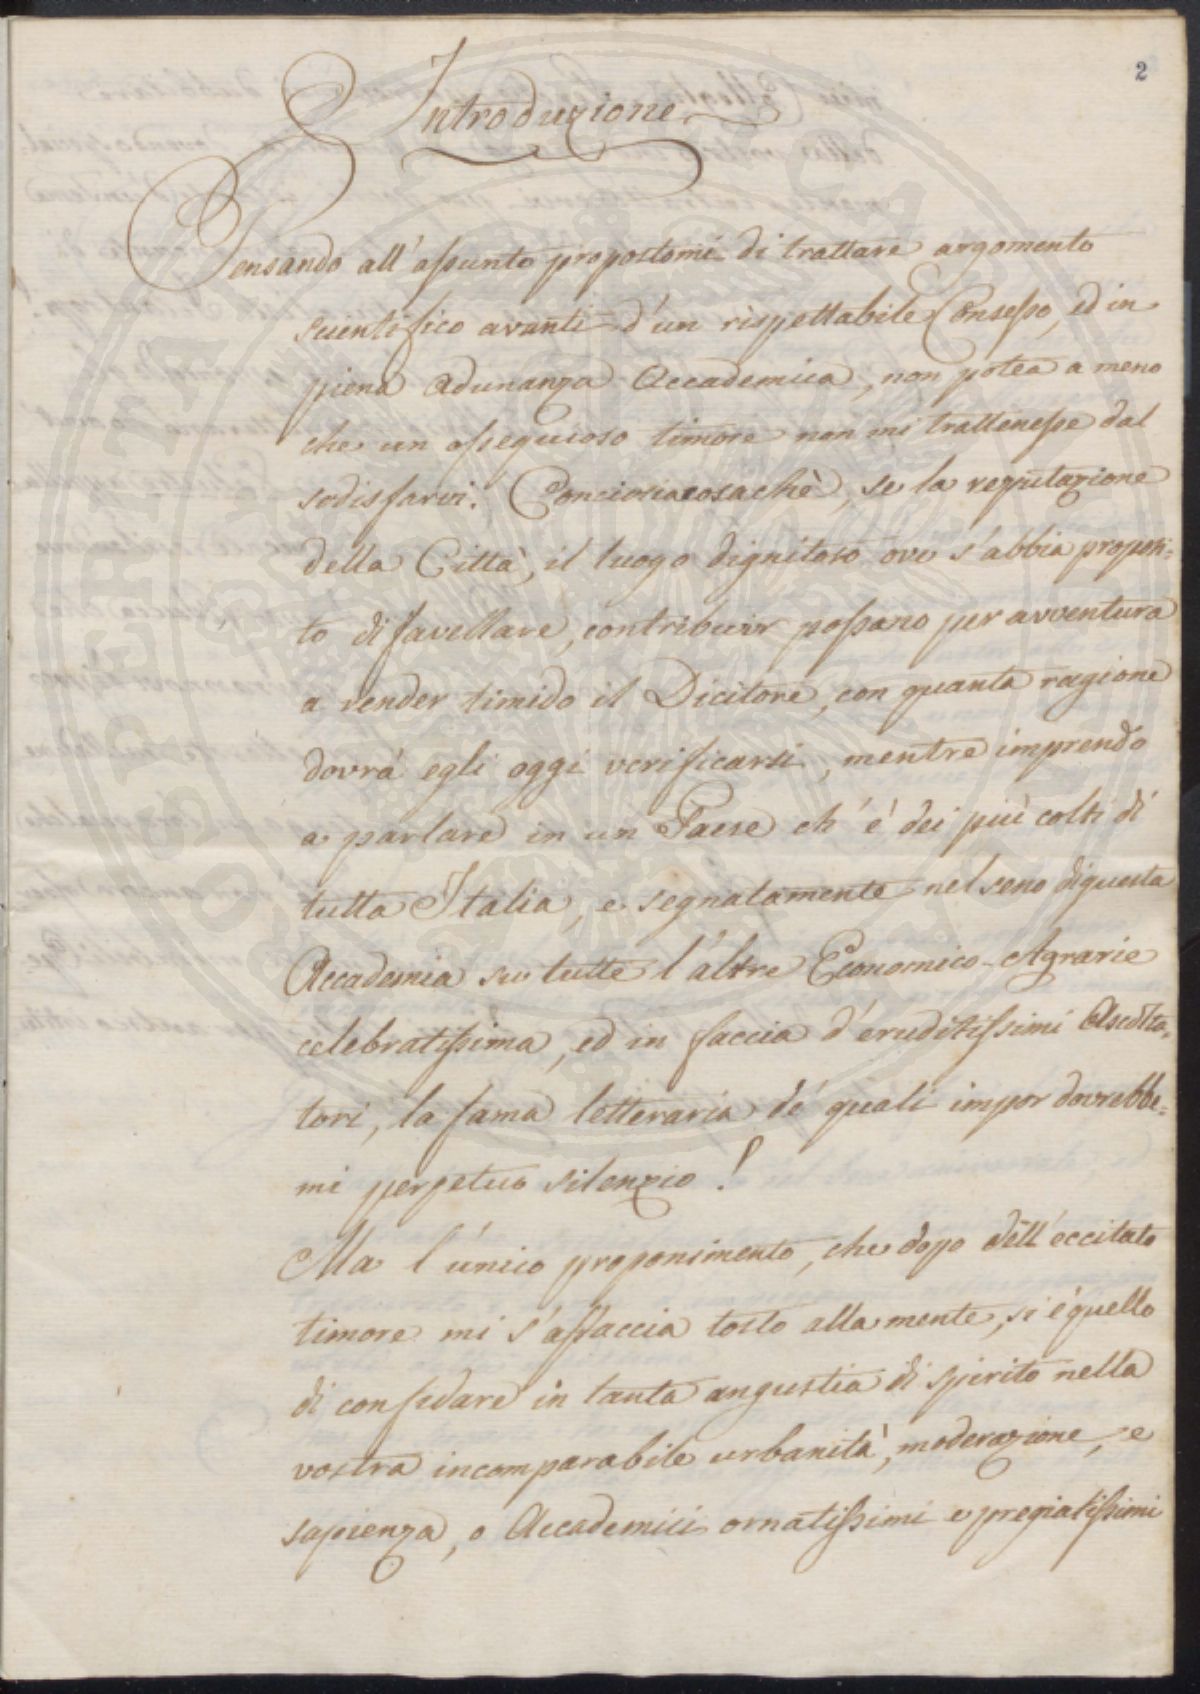 2
Introduzione
Pensando all'assunto propostomi di trattare argomento
scientifico avanti d'un rispettabile Consesso, ed in
piena Adunanza Accademica, non potea a meno
che un ossequioso timore non mi trattenesse dal
sodisfarvi. Conciosiacosachè, se la reputazione
della Città, il luogo dignitoso ove s'abbia proposi-
to di favellare, contribuir possano per avventura
a render timido il Dicitore, con quanta ragione
dovrà egli oggi verificarsi, mentre imprendo
a parlare in un Paese ch'è dei più colti di
tutta Italia, e segnatamente nel seno di questa
Accademia su tutte l'altre Economico-Agrarie
celebratissima, ed in faccia d'eruditissimi Ascolta-
tori, la fama letteraria de' quali impor dovrebbe=
mi perpetuo silenzio!
Ma l'unico proponimento, che dopo dell'eccitato
timore mi s'affaccia tosto alla mente, si è quello
di confidare in tanta angustia di spirito nella
vostra incomparabile urbanità, moderazione, e
sapienza, o Accademici ornatissimi e pregiatissimi